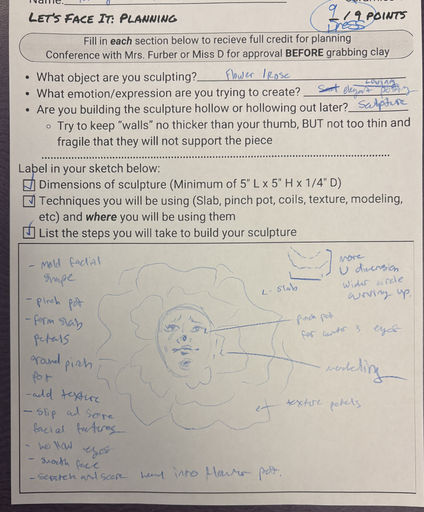 Name:
LET'S FACE IT: PLANNING
9 / 9 POINTS
Fill in each section below to recieve full credit for planning
Conference with Mrs. Furber or Miss D for approval BEFORE grabbing clay
• What object are you sculpting? Flower / Rose
• What emotion/expression are you trying to create? elegant
• Are you building the sculpture hollow or hollowing out later? Sculpture
○ Try to keep "walls" no thicker than your thumb, BUT not too thin and
fragile that they will not support the piece
Label in your sketch below:
Dimensions of sculpture (Minimum of 5" L x 5" H x 1/4" D)
Techniques you will be using (Slab, pinch pot, coils, texture, modeling,
etc) and where you will be using them
List the steps you will take to build your sculpture
- mold facial
shape
- pinch pot
- form slab
petals
around pinch
pot
- add texture
- slip and score
facial features
- hollow eyes
- smooth face
- scratch and score head into flower pot.
more
U dimension
wider circle
curving up.
slab
pinch pot
for center & eyes
modeling
texture petals